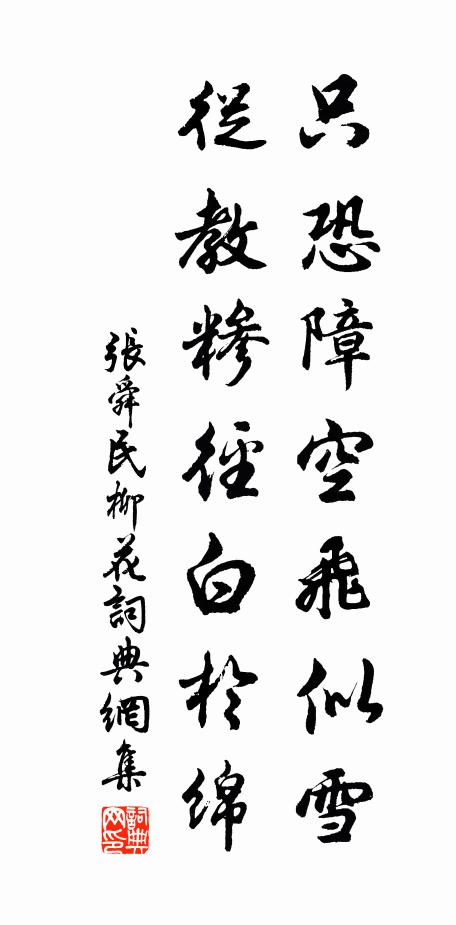 只恐障空飛似雪
從教糝徑白於綿
張舜民柳花詞典網集
詞典網印